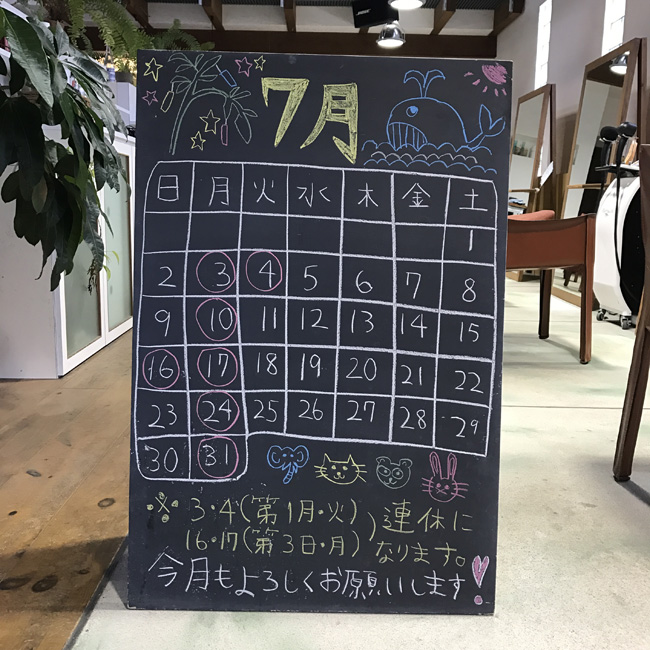 7月
日 月 火 水 木 金 土
1
2 3 4 5 6 7 8
9 10 11 12 13 14 15
16 17 18 19 20 21 22
23 24 25 26 27 28 29
30 31
※ 3・4(第1月・火)
16・17(第3日・月)
) 連休に
なります。
今月もよろしくお願いします!